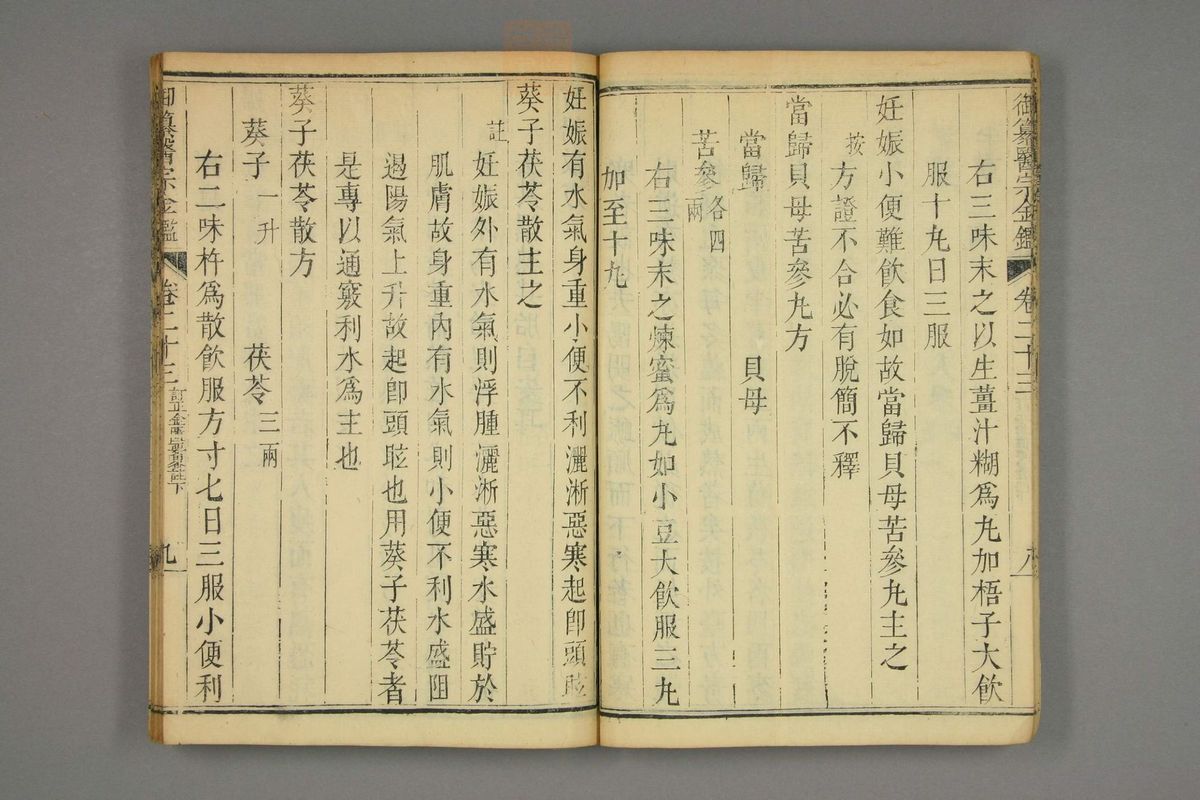 御纂醫宗金鑑 卷二十三 八
右三味末之以生薑汁糊爲丸加梧子大飲
服十丸日三服
妊娠小便難飲食如故當歸貝母苦參丸主之
按方證不合必有脫簡不釋
當歸貝母苦參丸方
當歸 貝母
苦參各四兩
右三味末之煉蜜爲丸如小豆大飲服三丸
加至十丸
妊娠有水氣身重小便不利灑淅惡寒起卽頭眩
葵子茯苓散主之
註妊娠外有水氣則浮腫灑淅惡寒水盛貯於
肌膚故身重內有水氣則小便不利水盛阻
遏陽氣上升故起卽頭眩也用葵子茯苓者
是專以通竅利水爲主也
葵子茯苓散方
葵子一升 茯苓三兩
右二味杵爲散飲服方寸匕日三服小便利
御纂醫宗金鑑 卷二十三 訂正金匱要略註下 九